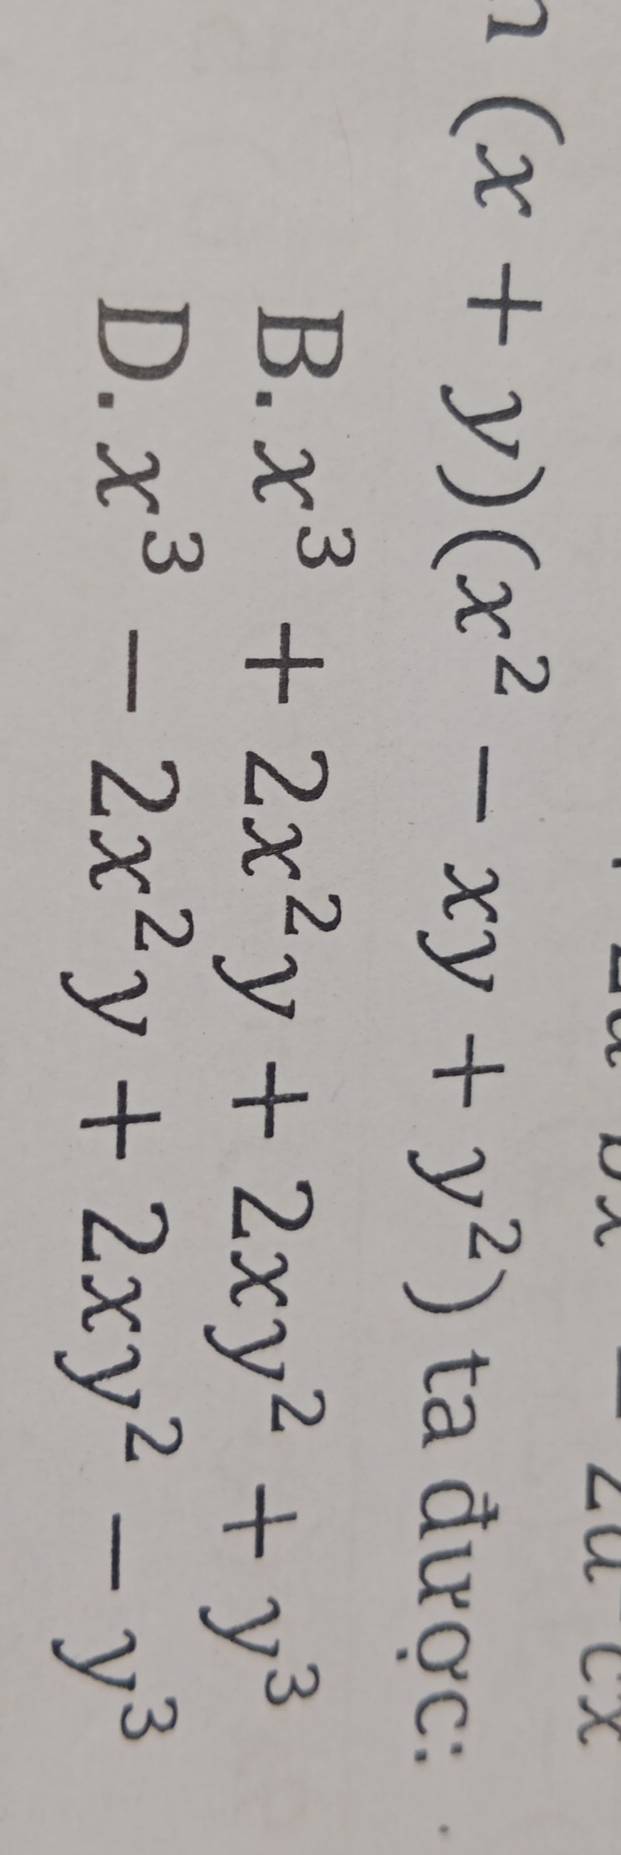 (x + y)(x² − xy + y²) ta được:
B. x³ + 2x²y + 2xy² + y³
D. x³ − 2x²y + 2xy² − y³